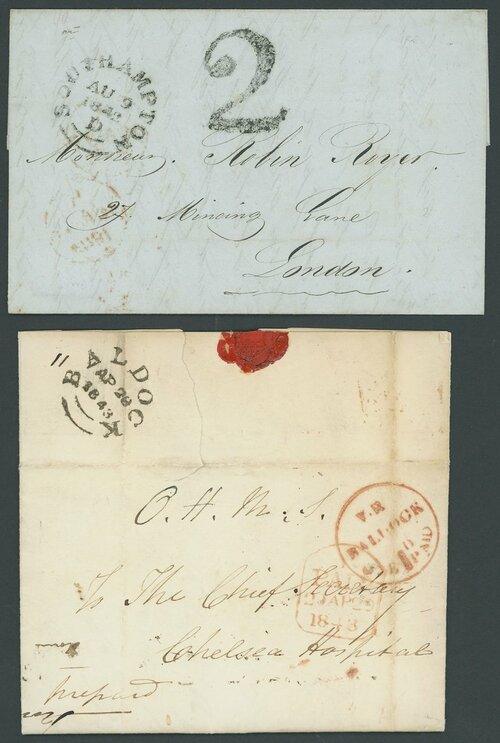 SOUTHAMPTON
AU 9
1842
D
2
Monsieur. Robin Royer.
27 Mincing Lane
London.
11
BALDOCK
AP 28
1843
O. H. M. S.
V.R
BALDOCK
PAID
To The Chief Secretary
1843
Chelsea Hospital
prepaid